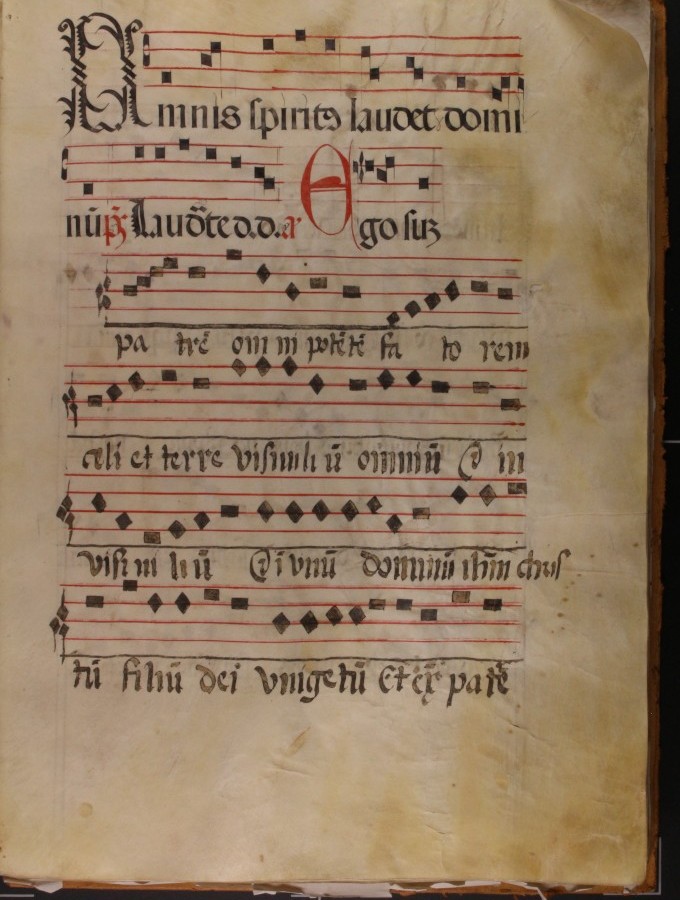 Omnis spirits laudet domi
nū ps̄ Laudāte d.d. ar Ego suz
pa trē om ni potētē fa to rem
celi et terre visibili ū omniū & in
visi bi li ū & ī vnū dominū ihm̄ chris
tū filiū dei vnigetū Et ex̄ patē